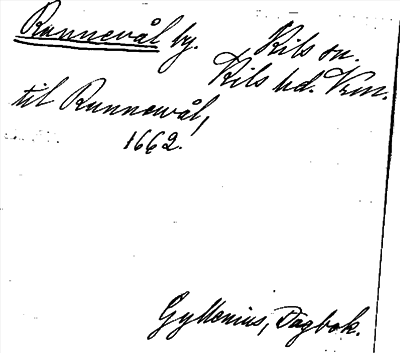 Runnevål by.
Kils sn.
Kils hd. Vrm.
til Runnewål,
1662.
Gyllenius, Dagbok.